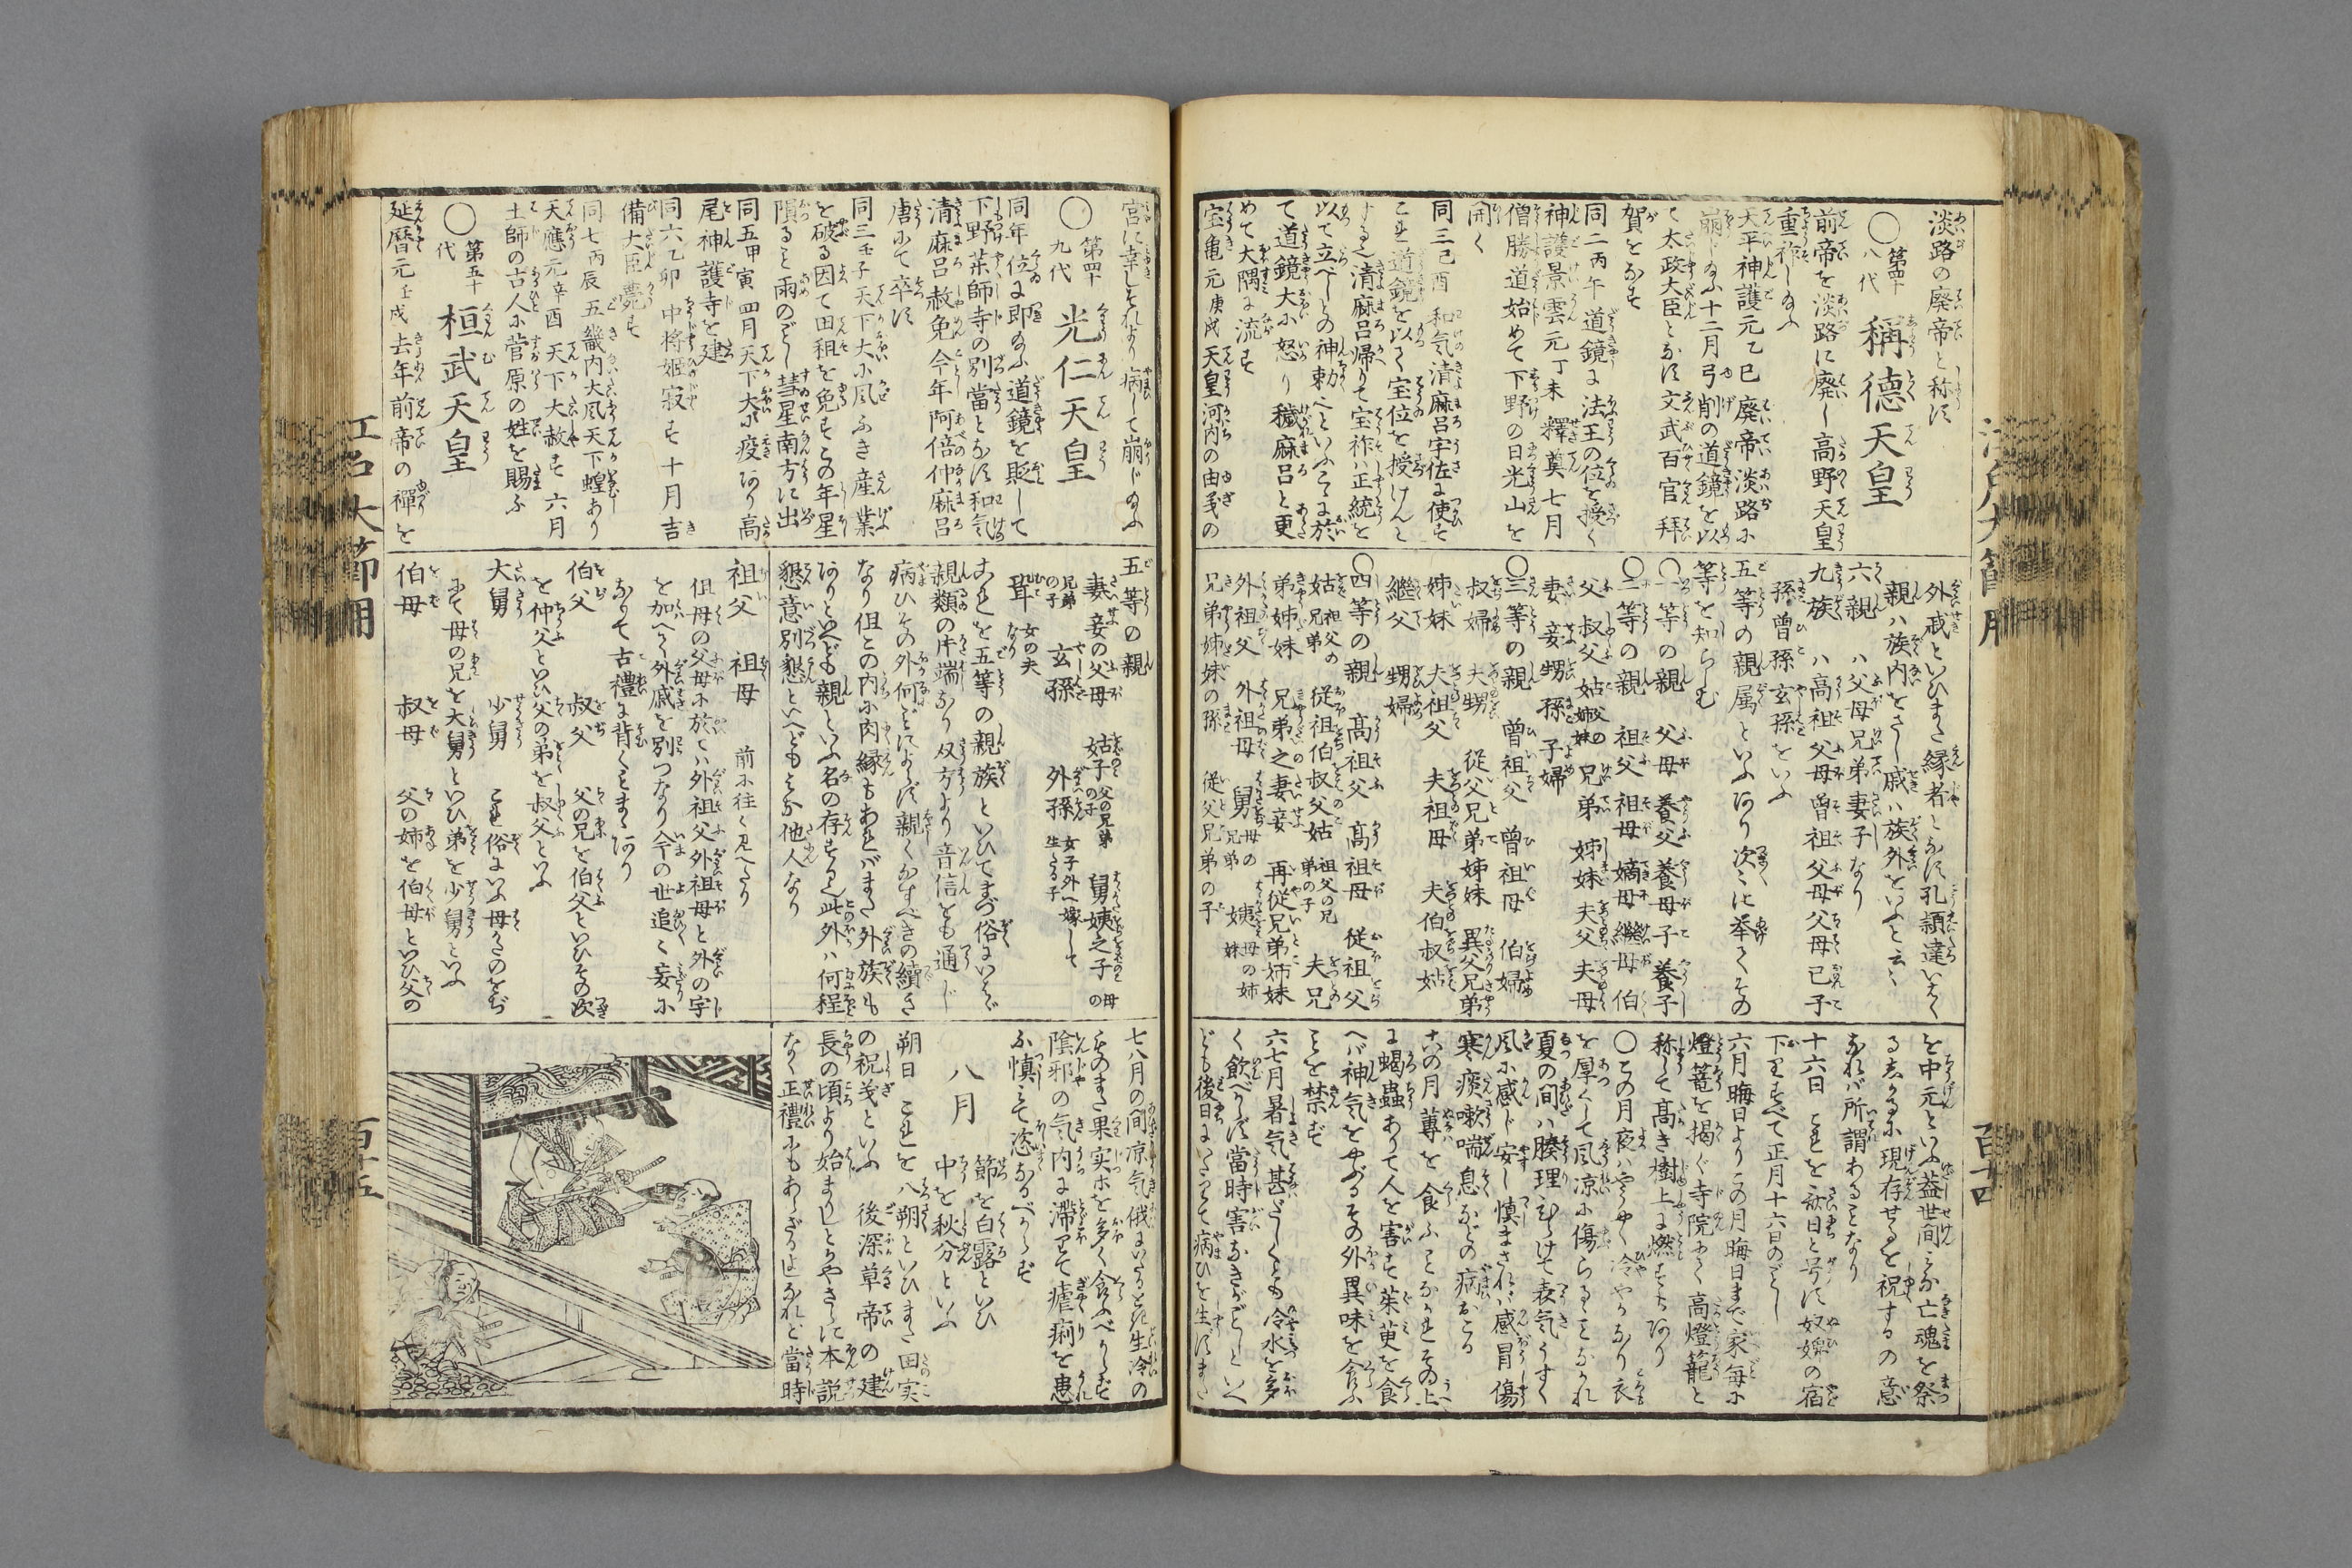 淡路の廃帝と称す
〇第四十八代 稱德天皇
前帝を淡路に廃し高野天皇
重祚し給ふ
天平神護元乙巳 廃帝淡路に
崩じ給ふ十二月弓削の道鏡を以
て太政大臣となす文武百官拝
賀をなす
同二丙午 道鏡に法王の位を授く
神護景雲元丁未 釋奠七月
僧勝道始めて下野の日光山を
開く
同三己酉 和気清麻呂宇佐に使す
これ道鏡を以て宝位を授けんと
する也清麻呂帰りて宝祚ハ正統を
以て立べしとの神勅也といふこゝに於
て道鏡大に怒り穢麻呂と更
めて大隅に流す
宝亀元庚戌 天皇河内の由義の
外戚といひまた縁者となす孔頴達いはく
親ハ族内をさし戚ハ族外をいふと云々
六親 ハ父母兄弟妻子なり
九族 ハ高祖父母曾祖父母父母己子
孫曾孫玄孫をいふ
五等の親属といふあり次に挙てその
等を知らしむ
〇一等の親 父母 養父養母子養子
〇二等の親 祖父 祖母 嫡母 繼母 伯
父 叔父 姑 兄弟 姉妹 夫父 夫母
妻 妾 甥 孫 子婦
〇三等の親 曾祖父 曾祖母 伯婦
叔婦 夫甥 従父兄弟姉妹 異父兄弟
姉妹 夫祖父 夫祖母 夫伯叔姑
繼父 甥婦
〇四等の親 高祖父 高祖母 従祖父
姑 祖父の兄弟 従祖伯叔父姑 祖父の兄弟の子 夫兄
弟姉妹 兄弟之妻妾 再従兄弟姉妹
外祖父 外祖母 舅 母の兄弟 姨 母の姉妹
兄弟姉妹の孫 従父兄弟の子
を中元といふ盖世間こゝろ亡魂を祭
るゝに現存せるを祝するの意
なれバ所謂あることなり
十六日 これを薮日と号す奴婢の宿
下りすべて正月十六日のごとし
六月晦日よりこの月晦日まで家毎に
燈篭を掲ぐ寺院にて高燈籠と
称して高き樹上に燃すもあり
〇この月夜ハやうやく冷やかなり衣
を厚くして風凉に傷らるゝことなかれ
夏の間ハ腠理ひらけて表気うすく
風に感じ安し慎まざれバ感冒傷
寒痰嗽喘息などの病おこる
〇この月蓴を食ふことなかれその上
に蝎蟲ありて人を害す茱萸を食
へバ神気をやぶるその外異味を食ふ
ことを禁ず
六七月暑気甚だしくとも冷水を多
く飲べからず當時害なきがごとしといへ
ども後日にいたつて病ひを生ずまた
宮に幸しそれより病して崩じ給ふ
〇第四十九代 光仁天皇
同年 位に即給ふ道鏡を貶して
下野薬師寺の別當となす和気
清麻呂赦免今年阿倍仲麻呂
唐にて卒す
同三壬子 天下大に風ふき産業
を破る因て田租を免すこの年星
隕ること雨のごとし彗星南方に出
同五甲寅 四月天下大に疫あり高
尾神護寺を建
同六乙卯 中将姫寂す十月吉
備大臣薨ず
同七丙辰 五畿内大風天下蝗あり
天應元辛酉 天下大赦す 六月
土師の古人に菅原の姓を賜ふ
〇第五十代 桓武天皇
延暦元壬戌 去年前帝の禪を
五等の親
妻妾の父母 姑子 父の兄弟の子 舅姨之子 母の
兄弟の子 玄孫 外孫 女子外へ嫁して生る子
聟 女の夫なり
これを五等の親族といひてまづ俗にいはゞ
親類の片端なり双方より音信をも通じ
病ひその外何ごとによらず親くなすべきの續き
なり但この内に肉縁もあれバまた外族も
ありといへども親といふ名の存する也此外ハ何程
懇意別懇といへどもみな他人なり
祖父 祖母 前に往々見へたり
但母の父母に於てハ外祖父外祖母と外の字
を加へて外戚を別つなり今の世追々妄に
なりて古禮に背くことまゝあり
伯父 叔父 父の兄を伯父といひその次
を仲父といひ父の弟を叔父といふ
大舅 少舅 これ俗にいふ母かたのをぢ
にて母の兄を大舅といひ弟を少舅といふ
伯母 叔母 父の姉を伯母といひ父の
七八月の間凉気俄にいたるとき生冷の
ものまた果実ホを多く食ふべからず
陰邪の気内に滞りて瘧痢を患
ふ慎みて恣なるべからず
八月 節を白露といひ
中を秋分といふ
朔日 これを八朔といひまた田実
の祝義といふ 後深草帝の建
長の頃より始まりしとかやさらに本説
なく正禮にもあらざりしなれど當時
江戸大節用
百十四
百十五